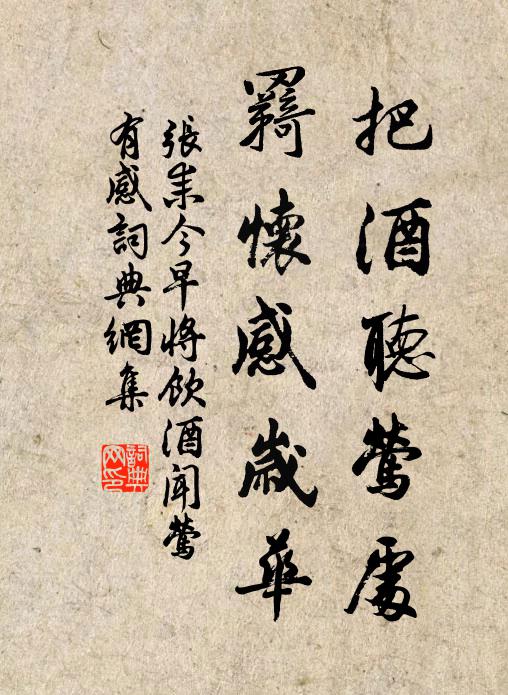 把酒聽鶯處
羇懷感歲華
張耒今早將飲酒聞鶯
有感詞典網集
詞典
网印